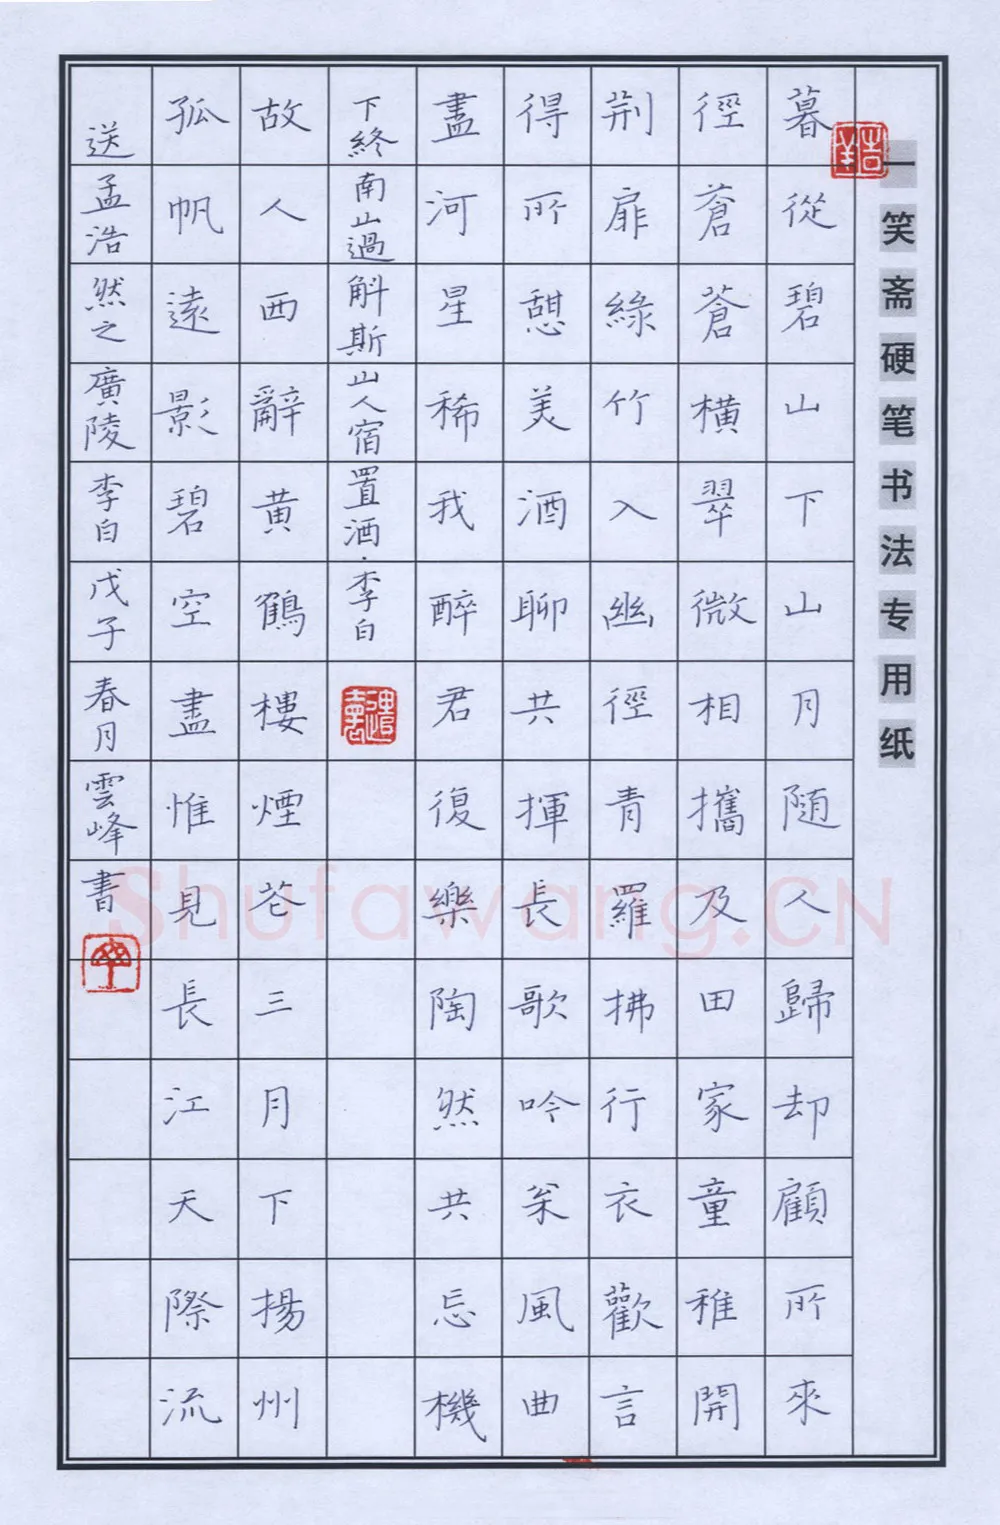 一笑斋硬笔书法专用纸
吉羊
暮從碧山下山月随人歸却顧所來
徑蒼蒼橫翠微相攜及田家童稚開
荆扉綠竹入幽徑青羅拂行衣歡言
得所憩美酒聊共揮長歌吟松風曲
盡河星稀我醉君復樂陶然共忘機
下終南山過斛斯山人宿置酒·李白
故人西辭黄鶴樓煙花三月下揚州
孤帆遠影碧空盡惟見長江天際流
送孟浩然之廣陵李白戊子春月雲峰書
Shufawang.CN